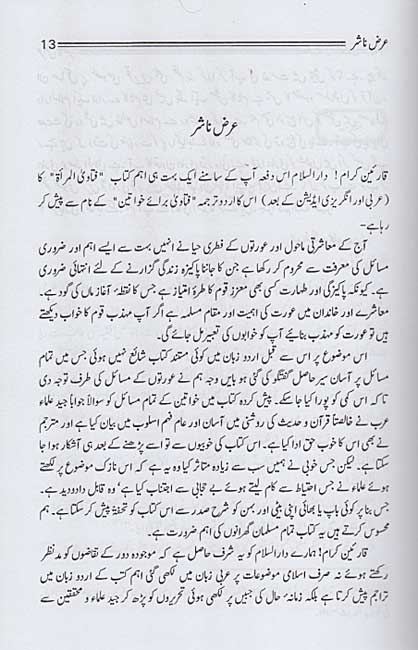 عرض ناشر 13
عرض ناشر
قارئین کرام! دارالسلام اس دفعہ آپ کے سامنے ایک بہت ہی اہم کتاب "فتاوی المرأة" کا
(عربی اور انگریزی ایڈیشن کے بعد) اس کا اردو ترجمہ "فتاویٰ برائے خواتین" کے نام سے پیش کر
رہا ہے۔
آج کے معاشرتی ماحول اور عورتوں کے فطری حیا نے انہیں بہت سے ایسے اہم اور ضروری
مسائل کی معرفت سے محروم کر رکھا ہے جن کا جاننا پاکیزہ زندگی گزارنے کے لئے انتہائی ضروری
ہے۔ کیونکہ پاکیزگی اور طہارت کسی بھی معزز قوم کا طرۂ امتیاز ہے جس کا نقطۂ آغاز ماں کی گود ہے۔
معاشرے اور خاندان میں عورت کی اہمیت اور مقام مسلمہ ہے اگر آپ مہذب قوم کا خواب دیکھتے
ہیں تو عورت کو مہذب بنائیے آپ کو خوابوں کی تعبیر مل جائے گی۔
اس موضوع پر اس سے قبل اردو زبان میں کوئی مستند کتاب شائع نہیں ہوئی جس میں تمام
مسائل پر آسان سیر حاصل گفتگو کی گئی ہو بایں وجہ ہم نے عورتوں کے مسائل کی طرف توجہ دی
تا کہ اس کمی کو پورا کیا جا سکے۔ پیش کردہ کتاب میں خواتین کے تمام مسائل کو سوالاً جواباً جید علماء
عرب نے خالصتاً قرآن و حدیث کی روشنی میں آسان اور عام فہم اسلوب میں بیان کیا ہے اور مترجم
نے بھی اس کا خوب حق ادا کیا ہے۔ اس کتاب کی خوبیوں سے تو اسے پڑھنے کے بعد ہی آشکار ہوا جا
سکتا ہے۔ لیکن جس خوبی نے ہمیں سب سے زیادہ متاثر کیا وہ یہ ہے کہ اس نازک موضوع پر لکھتے
ہوئے علماء نے جس احتیاط سے کام لیتے ہوئے بے حجابی سے اجتناب کیا ہے' وہ قابل داد و دید ہے۔
جس بنا پر کوئی باپ یا بھائی اپنی بیٹی اور بہن کو شرح صدر سے اس کتاب کو تحفۃً پیش کر سکتا ہے۔ ہم
محسوس کرتے ہیں یہ کتاب تمام مسلمان گھرانوں کی اہم ضرورت ہے۔
قارئین کرام! ہمارے دارالسلام کو یہ شرف حاصل ہے کہ موجودہ دور کے تقاضوں کو مدنظر
رکھتے ہوئے نہ صرف اسلامی موضوعات پر عربی زبان میں لکھی گئی اہم کتب کے اردو زبان میں
تراجم پیش کرتا ہے بلکہ زمانۂ حال کی جبیں پر لکھی ہوئی تحریروں کو پڑھ کر جید علماء و محققین سے